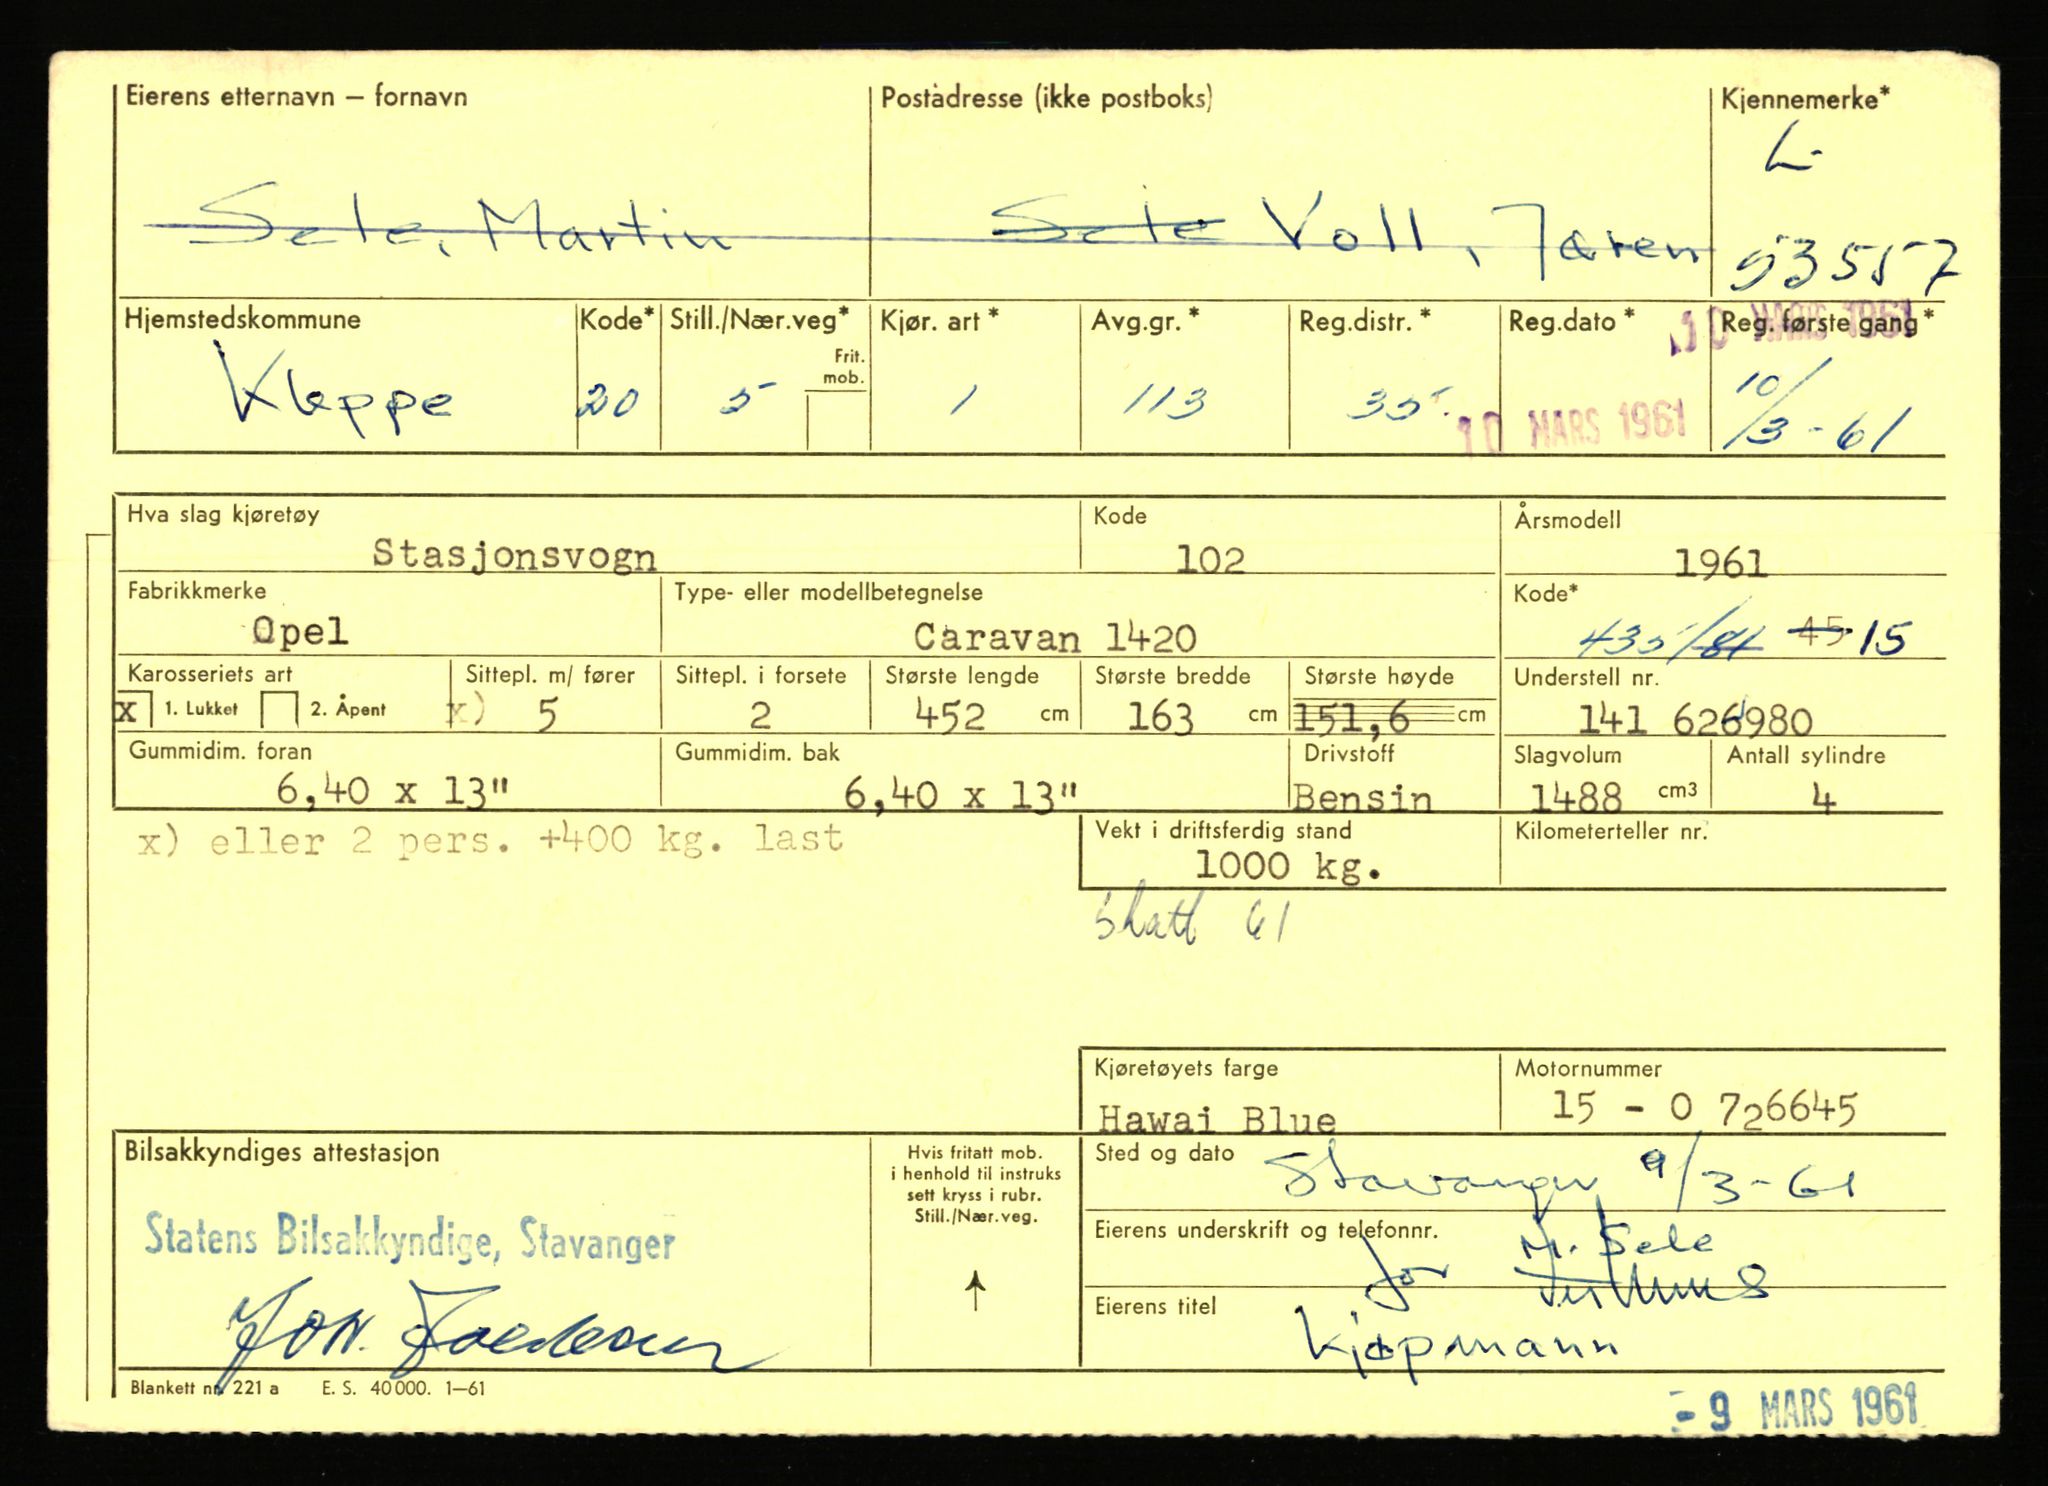 Eierens etternavn – fornavn Postadresse (ikke postboks) Kjennemerke*
L-
Sele, Martin Sele Voll, Jæren 53557
Hjemstedskommune Kode* Still./Nær.veg* Kjør. art* Avg.gr.* Reg.distr.* Reg.dato* Reg. første gang*
10 MARS 1961
Frit. mob.
Kleppe 20 5 1 113 35 10 MARS 1961 10/3-61
Hva slag kjøretøy Kode Årsmodell
Stasjonsvogn 102 1961
Fabrikkmerke Type- eller modellbetegnelse Kode*
Opel Caravan 1420 435/81 45 15
Karosseriets art Sittepl. m/ fører Sittepl. i forsete Største lengde Største bredde Største høyde Understell nr.
x 1. Lukket 2. Åpent x) 5 2 452 cm 163 cm 151,6 cm 141 626980
Gummidim. foran Gummidim. bak Drivstoff Slagvolum Antall sylindre
6,40 x 13" 6,40 x 13" Bensin 1488 cm3 4
x) eller 2 pers. +400 kg. last
Vekt i driftsferdig stand Kilometerteller nr.
1000 kg.
skatt 61
Kjøretøyets farge Motornummer
Hawai Blue 15 - 0 726645
Bilsakkyndiges attestasjon
Hvis fritatt mob.
i henhold til instruks
sett kryss i rubr.
Still./Nær.veg.
Sted og dato Stavanger 9/3-61
Statens Bilsakkyndige, Stavanger
Eierens underskrift og telefonnr. M. Sele
for
Eierens titel
Kjøpmann
Blankett nr. 221 a E. S. 40 000. 1–61
- 9 MARS 1961